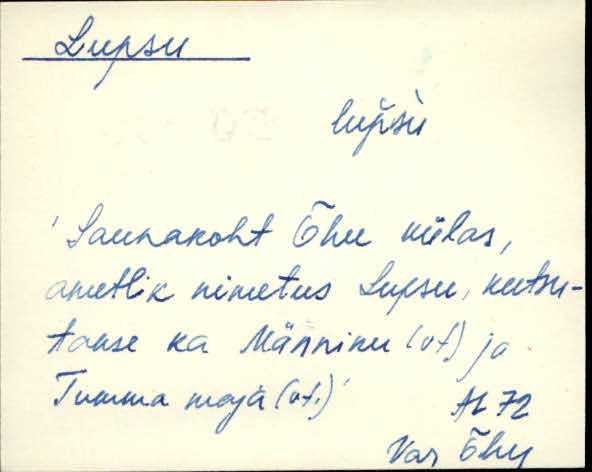 Lupsu
lup̆sù
'Saunakoht Õhu külas,
ametlik nimetus Lupsu, kutsu-
takse ka Männiku (vt.) ja
Tumma maja (vt.)'
AL 72
Var Õhu